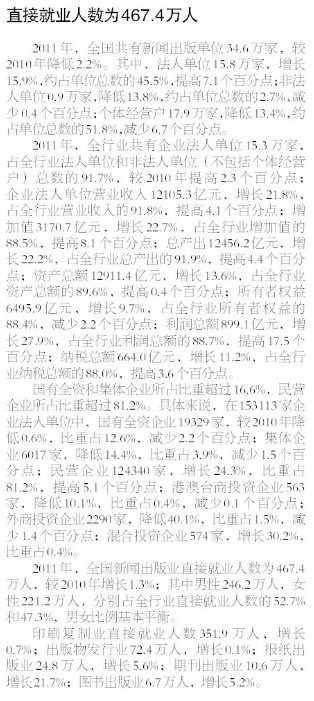 直接就业人数为467.4万人
2011年，全国共有新闻出版单位34.6万家，较
2010年降低2.2%。其中，法人单位15.8万家，增长
15.9%，约占单位总数的45.5%，提高7.1个百分点；非法
人单位0.9万家，降低13.8%，约占单位总数的2.7%，减
少0.4个百分点；个体经营户17.9万家，降低13.4%，约
占单位总数的51.8%，减少6.7个百分点。
2011年，全行业共有企业法人单位15.3万家，
占全行业法人单位和非法人单位（不包括个体经营
户）总数的91.7%，较2010年提高2.3个百分点；
企业法人单位营业收入12105.3亿元，增长21.8%，
占全行业营业收入的91.8%，提高4.1个百分点；增
加值3170.7亿元，增长22.7%，占全行业增加值的
88.5%，提高8.1个百分点；总产出12456.2亿元，增
长22.2%，占全行业总产出的91.9%，提高4.4个百分
点；资产总额12911.4亿元，增长13.6%，占全行业
资产总额的89.6%，提高0.4个百分点；所有者权益
6495.9亿元，增长9.7%，占全行业所有者权益的
88.4%，减少2.2个百分点；利润总额899.1亿元，增
长27.9%，占全行业利润总额的88.7%，提高17.5个
百分点；纳税总额664.0亿元，增长11.2%，占全行
业纳税总额的88.0%，提高3.6个百分点。
国有全资和集体企业所占比重超过16.6%，民营
企业所占比重超过81.2%。具体来说，在153113家企
业法人单位中，国有全资企业19329家，较2010年降
低0.6%，比重占12.6%，减少2.2个百分点；集体企
业6017家，降低14.4%，比重占3.9%，减少1.5个百
分点；民营企业124340家，增长24.3%，比重占
81.2%，提高5.1个百分点；港澳台商投资企业563
家，降低10.1%，比重占0.4%，减少0.1个百分点；
外商投资企业2290家，降低40.1%，比重占1.5%，减
少1.4个百分点；混合投资企业574家，增长30.2%，
比重占0.4%。
2011年，全国新闻出版业直接就业人数为467.4
万人，较2010年增长1.3%；其中男性246.2万人，女
性221.2万人，分别占全行业直接就业人数的52.7%
和47.3%，男女比例基本平衡。
印刷复制业直接就业人数351.9万人，增长
0.7%；出版物发行业72.4万人，增长0.1%；报纸出
版业24.8万人，增长5.6%；期刊出版业10.6万人，
增长21.7%；图书出版业6.7万人，增长5.2%。